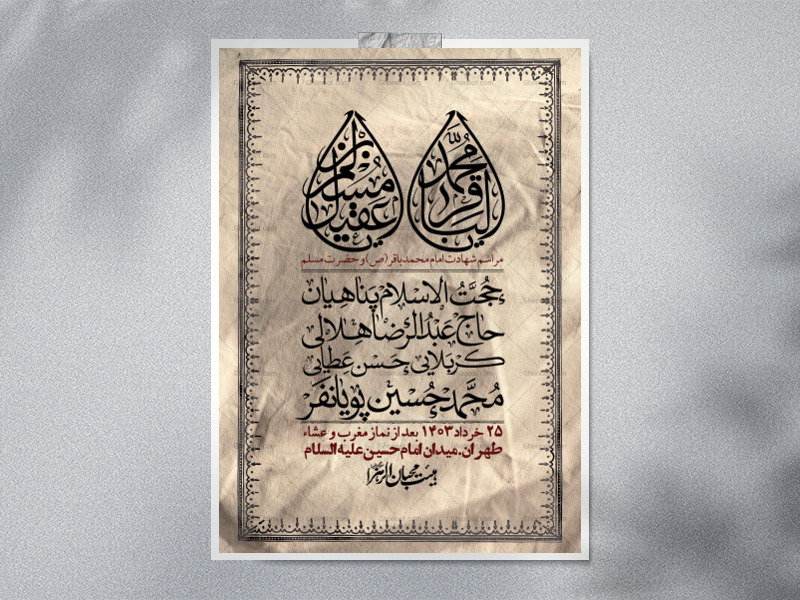 محمد الباقر
مسلم بن عقیل
مراسم شهادت امام محمد باقر (ص) و حضرت مسلم
حُجَّتُ الاسلام پَناهیان
حاج عَبدُالرِّضا هِلالی
کَربَلایی حَسَن عَطایی
مُحَمَّد حُسین پویانفَر
۲۵ خرداد ۱۴۰۳ بعد از نماز مغرب و عشاء
طهران.میدان امام حسین علیه السلام
هیئت محبان الزهرا